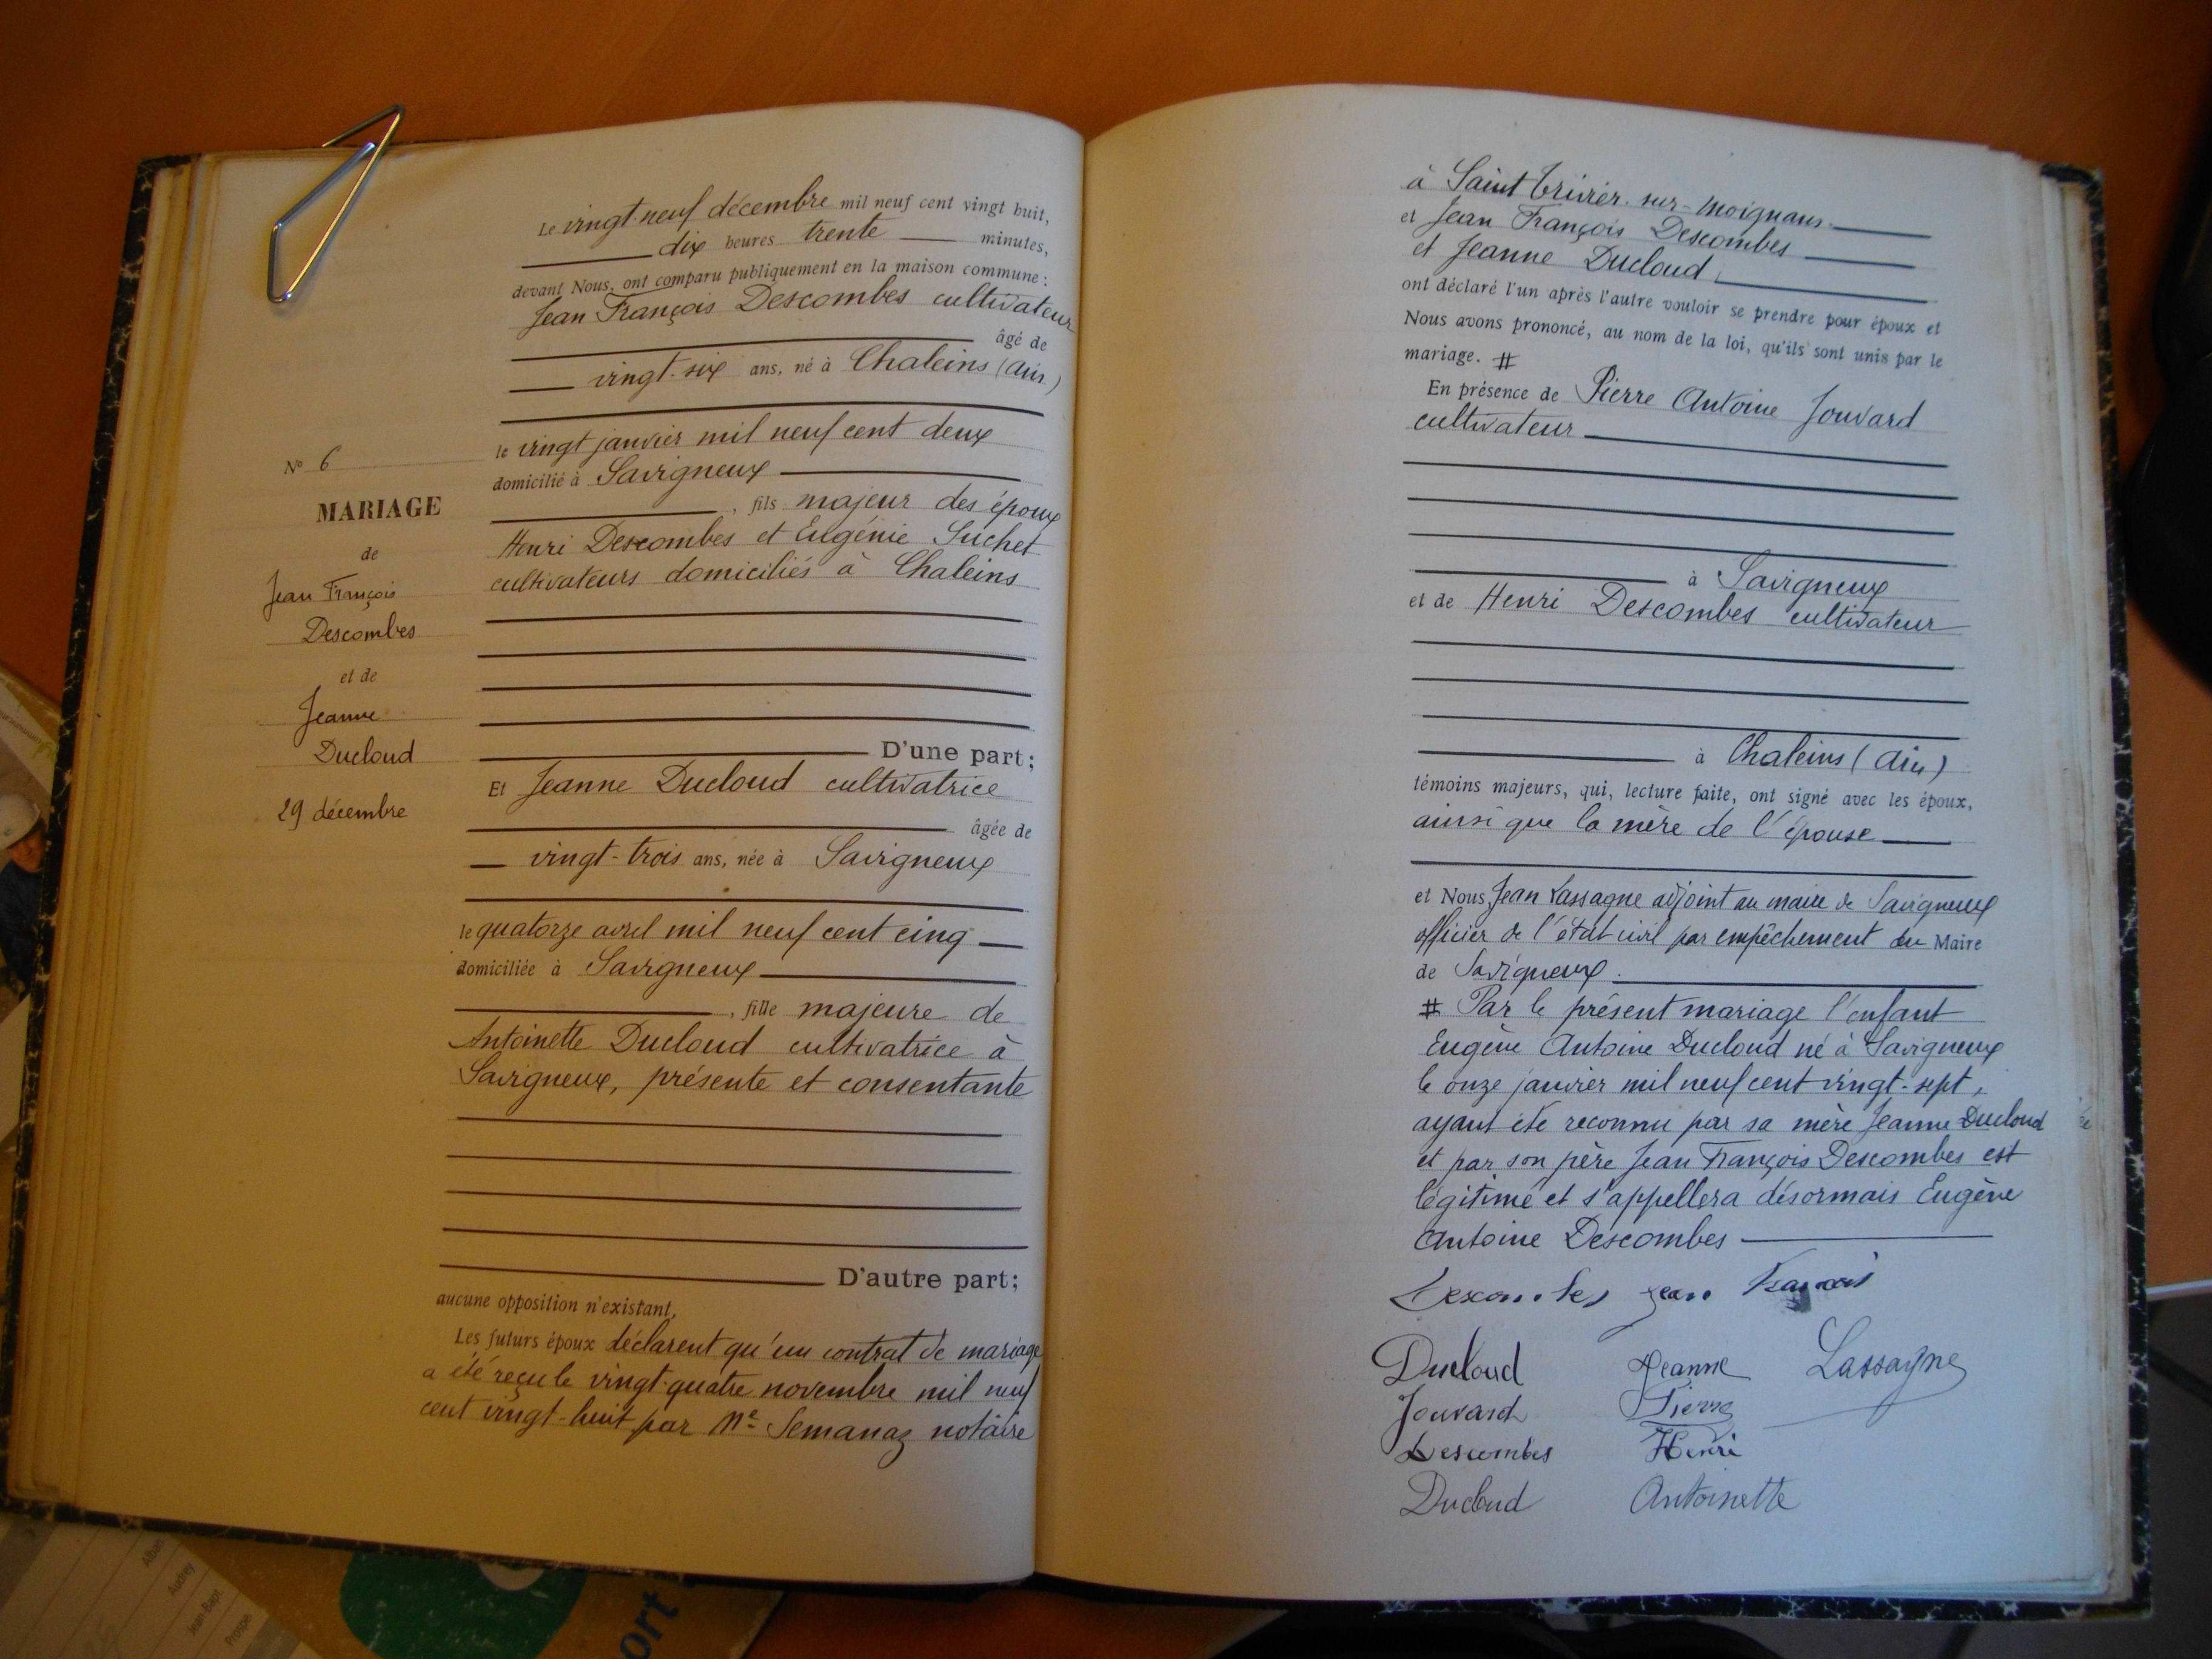 Le vingt-neuf décembre mil neuf cent vingt huit,
dix heures trente minutes,
devant Nous, ont comparu publiquement en la maison commune :
Jean François Descombes cultivateur
âgé de
vingt-six ans, né à Chaleins (Ain)
le vingt janvier mil neuf cent deux
domicilié à Savigneux
, fils majeur des époux
Henri Descombes et Eugénie Suchet
cultivateurs domiciliés à Chaleins
D'une part;
Et Jeanne Ducloud cultivatrice
âgée de
vingt-trois ans, née à Savigneux
le quatorze avril mil neuf cent cinq
domiciliée à Savigneux
, fille majeure de
Antoinette Ducloud cultivatrice à
Savigneux, présente et consentante
D'autre part;
aucune opposition n'existant,
Les futurs époux déclarent qu'un contrat de mariage
a été reçu le vingt-quatre novembre mil neuf
cent vingt-huit par Me Semanaz notaire
No 6
MARIAGE
de
Jean François
Descombes
et de
Jeanne
Ducloud
29 décembre
à Saint Trivier-sur-Moignans
et Jean François Descombes
et Jeanne Ducloud
ont déclaré l'un après l'autre vouloir se prendre pour époux et
Nous avons prononcé, au nom de la loi, qu'ils sont unis par le
mariage. #
En présence de Pierre Antoine Jouvard
cultivateur
à Savigneux
et de Henri Descombes cultivateur
à Chaleins (Ain)
témoins majeurs, qui, lecture faite, ont signé avec les époux,
ainsi que la mère de l'épouse
et Nous, Jean Lassagne adjoint au maire de Savigneux
officier de l'état civil par empêchement du Maire
de Savigneux.
# Par le présent mariage l'enfant
Eugène Antoine Ducloud né à Savigneux
le onze janvier mil neuf cent vingt-sept,
ayant été reconnu par sa mère Jeanne Ducloud
et par son père Jean François Descombes est
légitimé et s'appellera désormais Eugène
Antoine Descombes
Descombes Jean François
Ducloud Jeanne Lassagne
Jouvard Pierre
Descombes Henri
Ducloud Antoinette
Alban
Audrey
Jean-Bapt
Prospe
ort